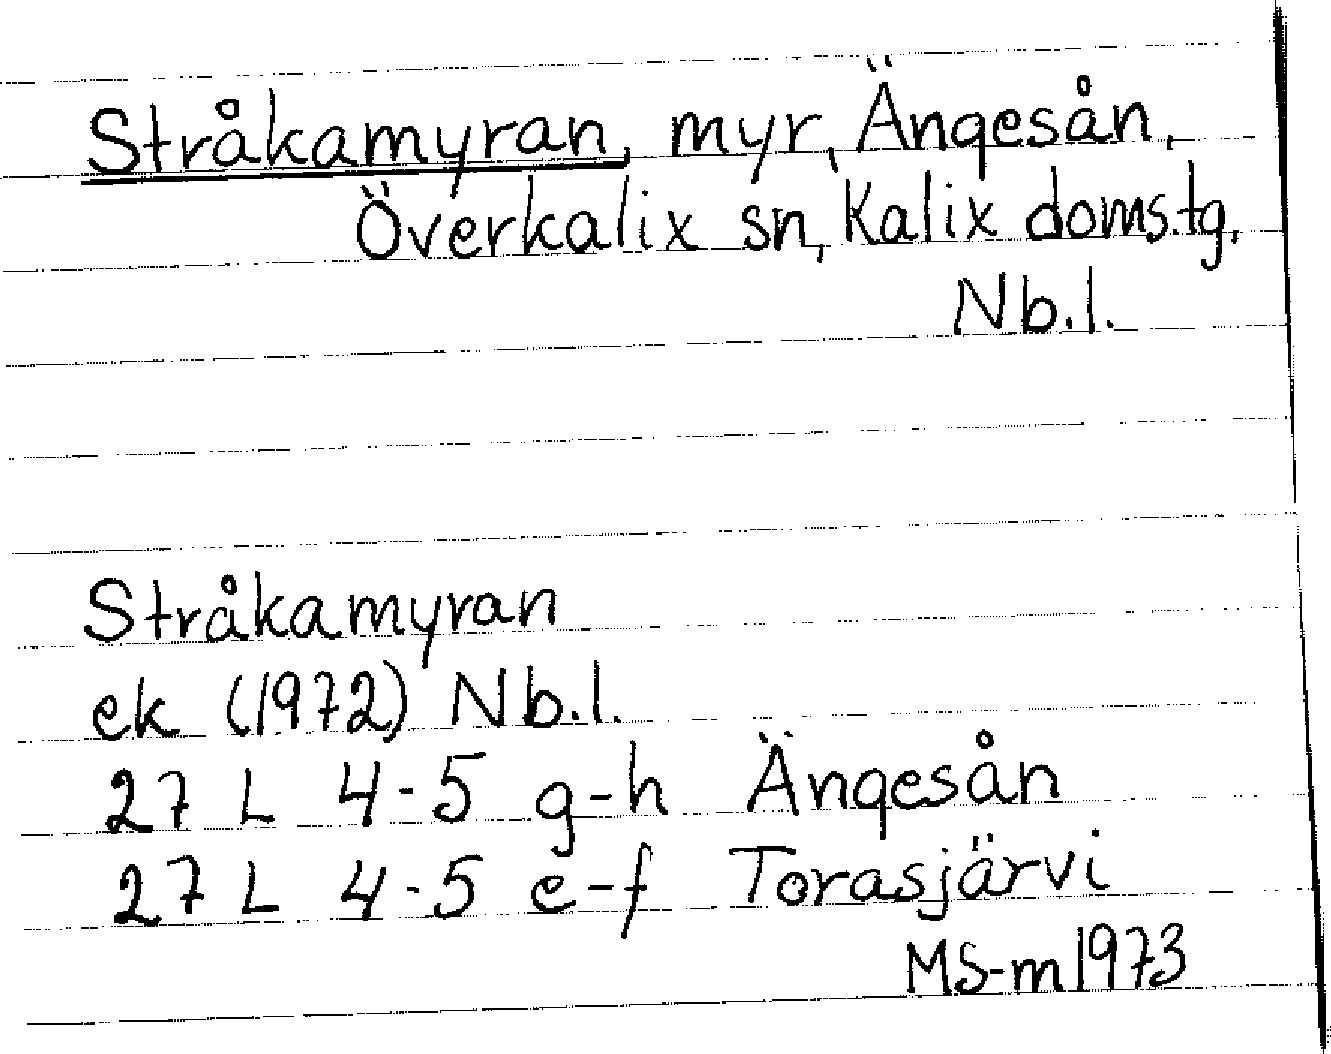 Stråkamyran, myr, Ängesån,
Överkalix sn, Kalix doms.tg,
Nb.l.
Stråkamyran
ek (1972) Nb.l.
27 L 4-5 g-h Ängesån
27 L 4-5 e-f Torasjärvi
MS-m 1973